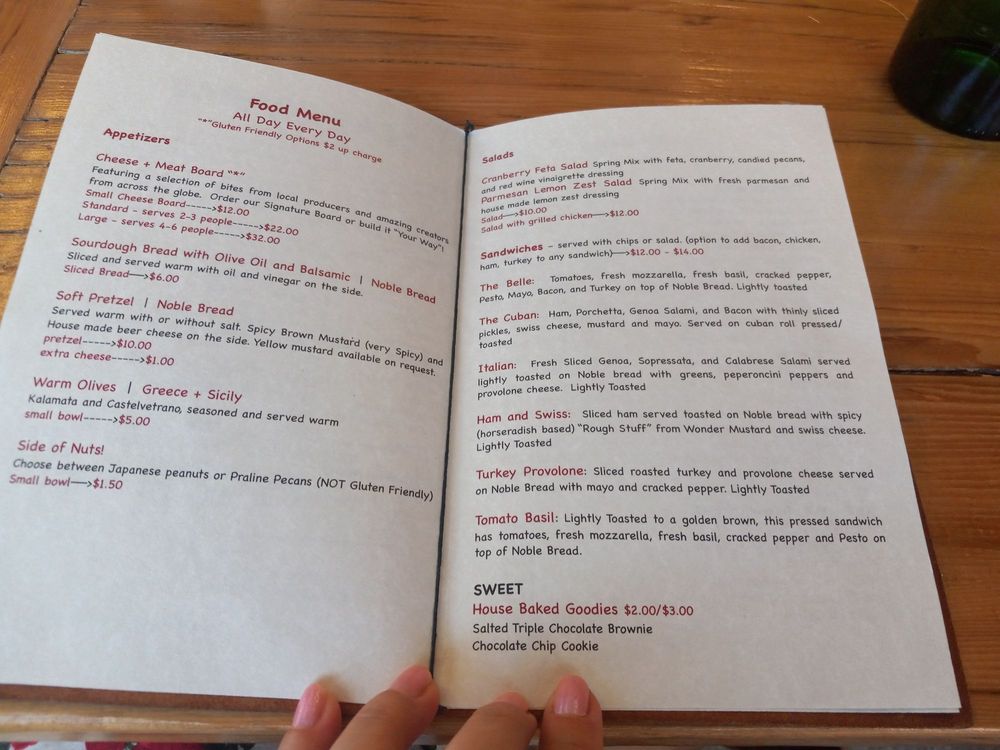 Food Menu
All Day Every Day
"*"Gluten Friendly Options $2 up charge
Appetizers
Cheese + Meat Board "*"
Featuring a selection of bites from local producers and amazing creators
from across the globe. Order our Signature Board or build it "Your Way"!
Small Cheese Board----->$12.00
Standard - serves 2-3 people----->$22.00
Large - serves 4-6 people----->$32.00
Sourdough Bread with Olive Oil and Balsamic | Noble Bread
Sliced and served warm with oil and vinegar on the side.
Sliced Bread—>$6.00
Soft Pretzel | Noble Bread
Served warm with or without salt. Spicy Brown Mustard (very Spicy) and
House made beer cheese on the side. Yellow mustard available on request.
pretzel----->$10.00
extra cheese----->$1.00
Warm Olives | Greece + Sicily
Kalamata and Castelvetrano, seasoned and served warm
small bowl----->$5.00
Side of Nuts!
Choose between Japanese peanuts or Praline Pecans (NOT Gluten Friendly)
Small bowl—>$1.50
Salads
Cranberry Feta Salad Spring Mix with feta, cranberry, candied pecans,
and red wine vinaigrette dressing
Parmesan Lemon Zest Salad Spring Mix with fresh parmesan and
house made lemon zest dressing
Salad—>$10.00
Salad with grilled chicken—>$12.00
Sandwiches - served with chips or salad. (option to add bacon, chicken,
ham, turkey to any sandwich)—>$12.00 - $14.00
The Belle: Tomatoes, fresh mozzarella, fresh basil, cracked pepper,
Pesto, Mayo, Bacon, and Turkey on top of Noble Bread. Lightly toasted
The Cuban: Ham, Porchetta, Genoa Salami, and Bacon with thinly sliced
pickles, swiss cheese, mustard and mayo. Served on cuban roll pressed/
toasted
Italian: Fresh Sliced Genoa, Sopressata, and Calabrese Salami served
lightly toasted on Noble bread with greens, peperoncini peppers and
provolone cheese. Lightly Toasted
Ham and Swiss: Sliced ham served toasted on Noble bread with spicy
(horseradish based) "Rough Stuff" from Wonder Mustard and swiss cheese.
Lightly Toasted
Turkey Provolone: Sliced roasted turkey and provolone cheese served
on Noble Bread with mayo and cracked pepper. Lightly Toasted
Tomato Basil: Lightly Toasted to a golden brown, this pressed sandwich
has tomatoes, fresh mozzarella, fresh basil, cracked pepper and Pesto on
top of Noble Bread.
SWEET
House Baked Goodies $2.00/$3.00
Salted Triple Chocolate Brownie
Chocolate Chip Cookie